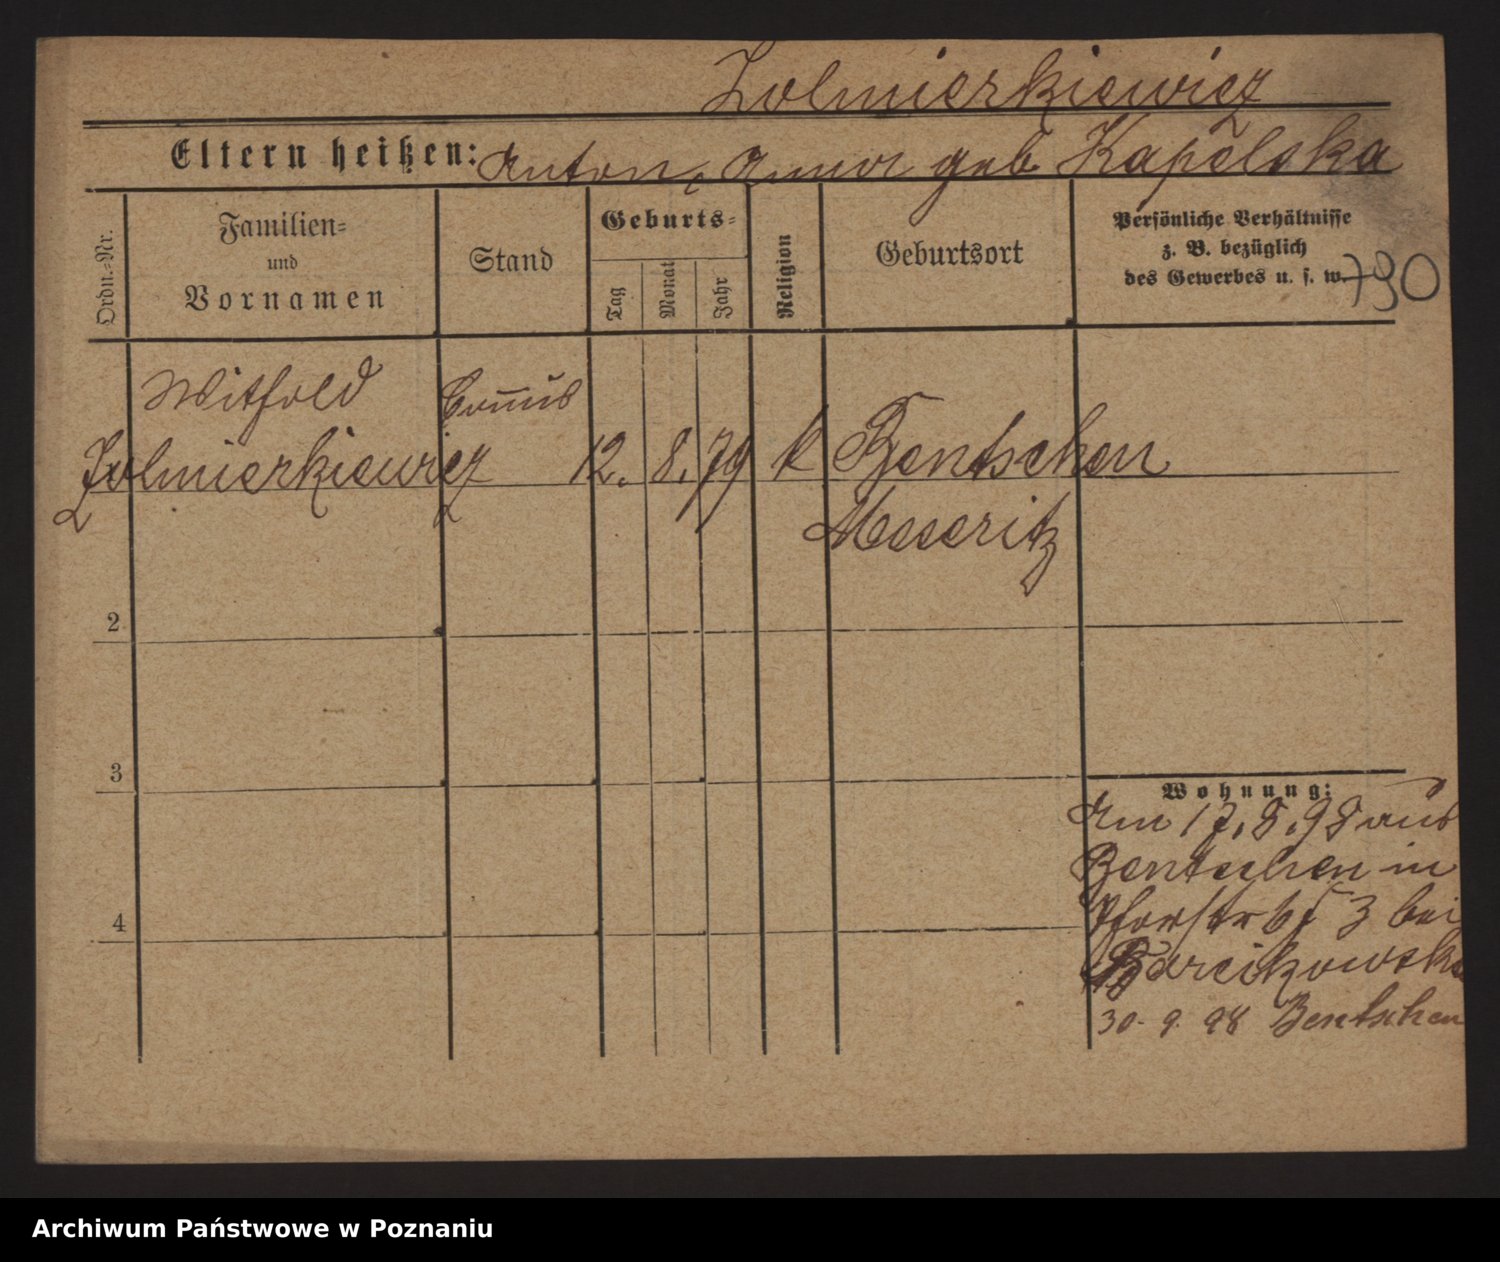 Zolmierkiewicz
Eltern heißen: Anton, Anna geb. Kapelska
Ordn.-Nr.
Familien-
und
Vornamen
Stand
Geburts-
Tag
Monat
Jahr
Religion
Geburtsort
Persönliche Verhältnisse
z. B. bezüglich
des Gewerbes u. s. w.
790
Withold
Zolmierkiewicz
Comis
12. 8. 79 k Bentschen
Meseritz
2
3
4
Wohnung:
Am 17.8.98 aus
Bentschen in
3 bei
Barcikowski
30. 9. 98 Bentschen
Archiwum Państwowe w Poznaniu